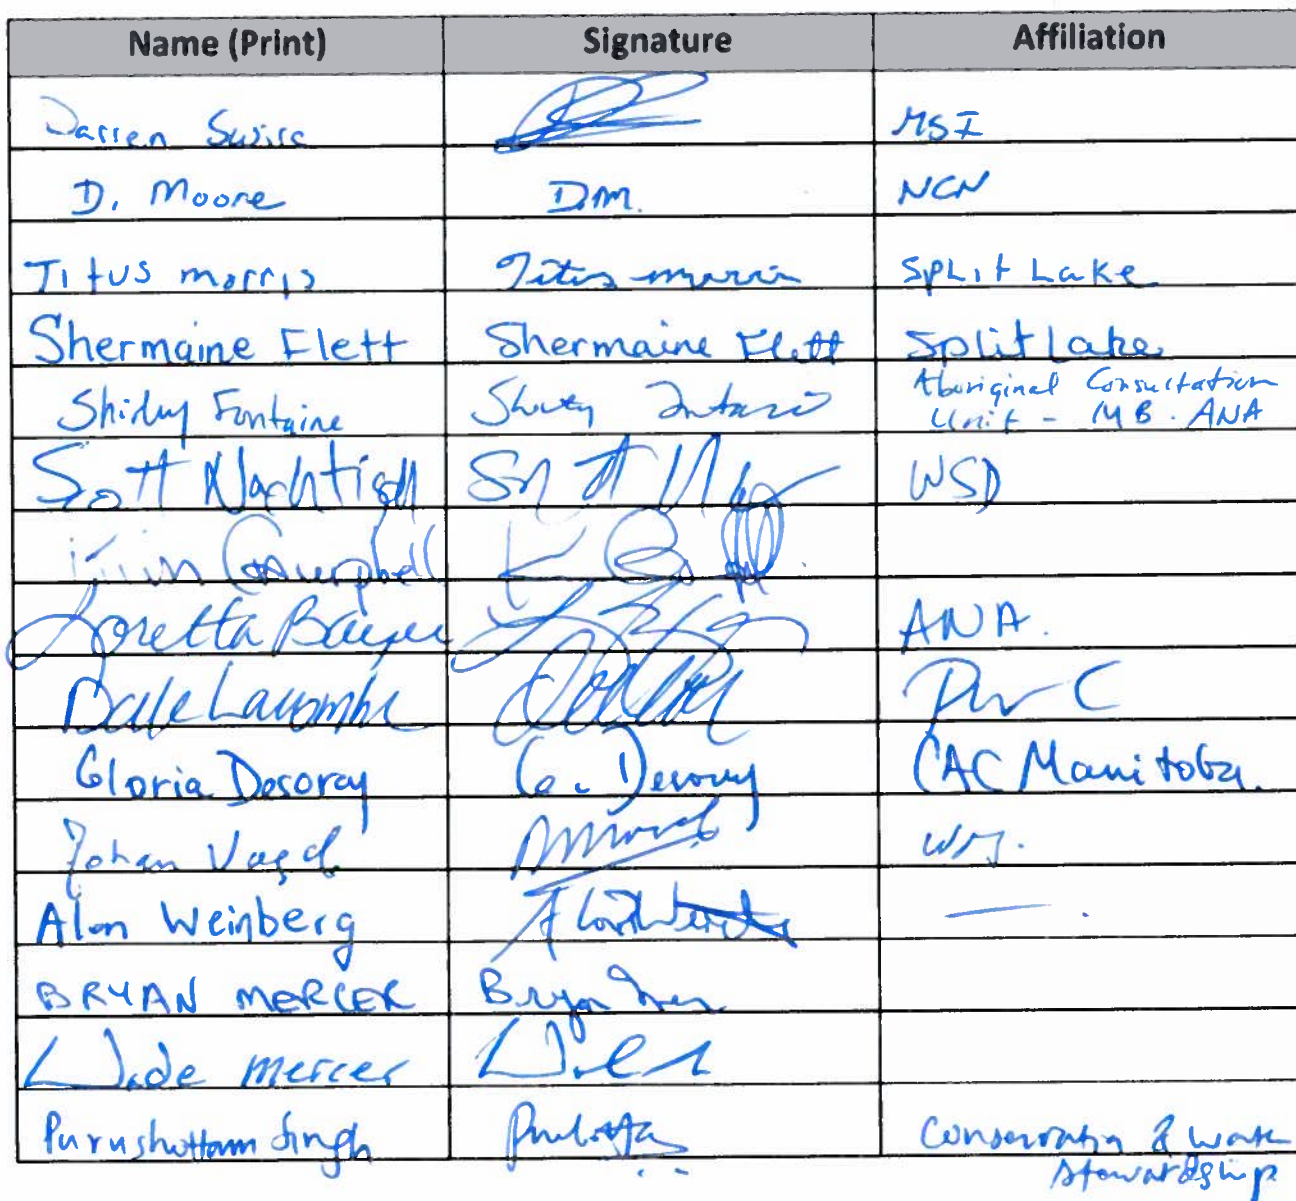 Name (Print) Signature Affiliation
Darren Swiss MSI
D. Moore D.M. NCN
Titus morris Titus morris SPLit Lake
Shermaine Flett Shermaine Flett Split Lake
Shirley Fontaine Aboriginal Consultation
Unit - MB. ANA
Scott Nachtigall WSD
Kevin Campbell
Loretta Bayer ANA.
Dale Lacombe
Gloria Desorcy G. Desorcy CAC Manitoba.
Johan
Alan Weinberg
BRYAN MERCER Bryan
Wade mercer
Purushottam Singh Conservation & Water
Stewardship